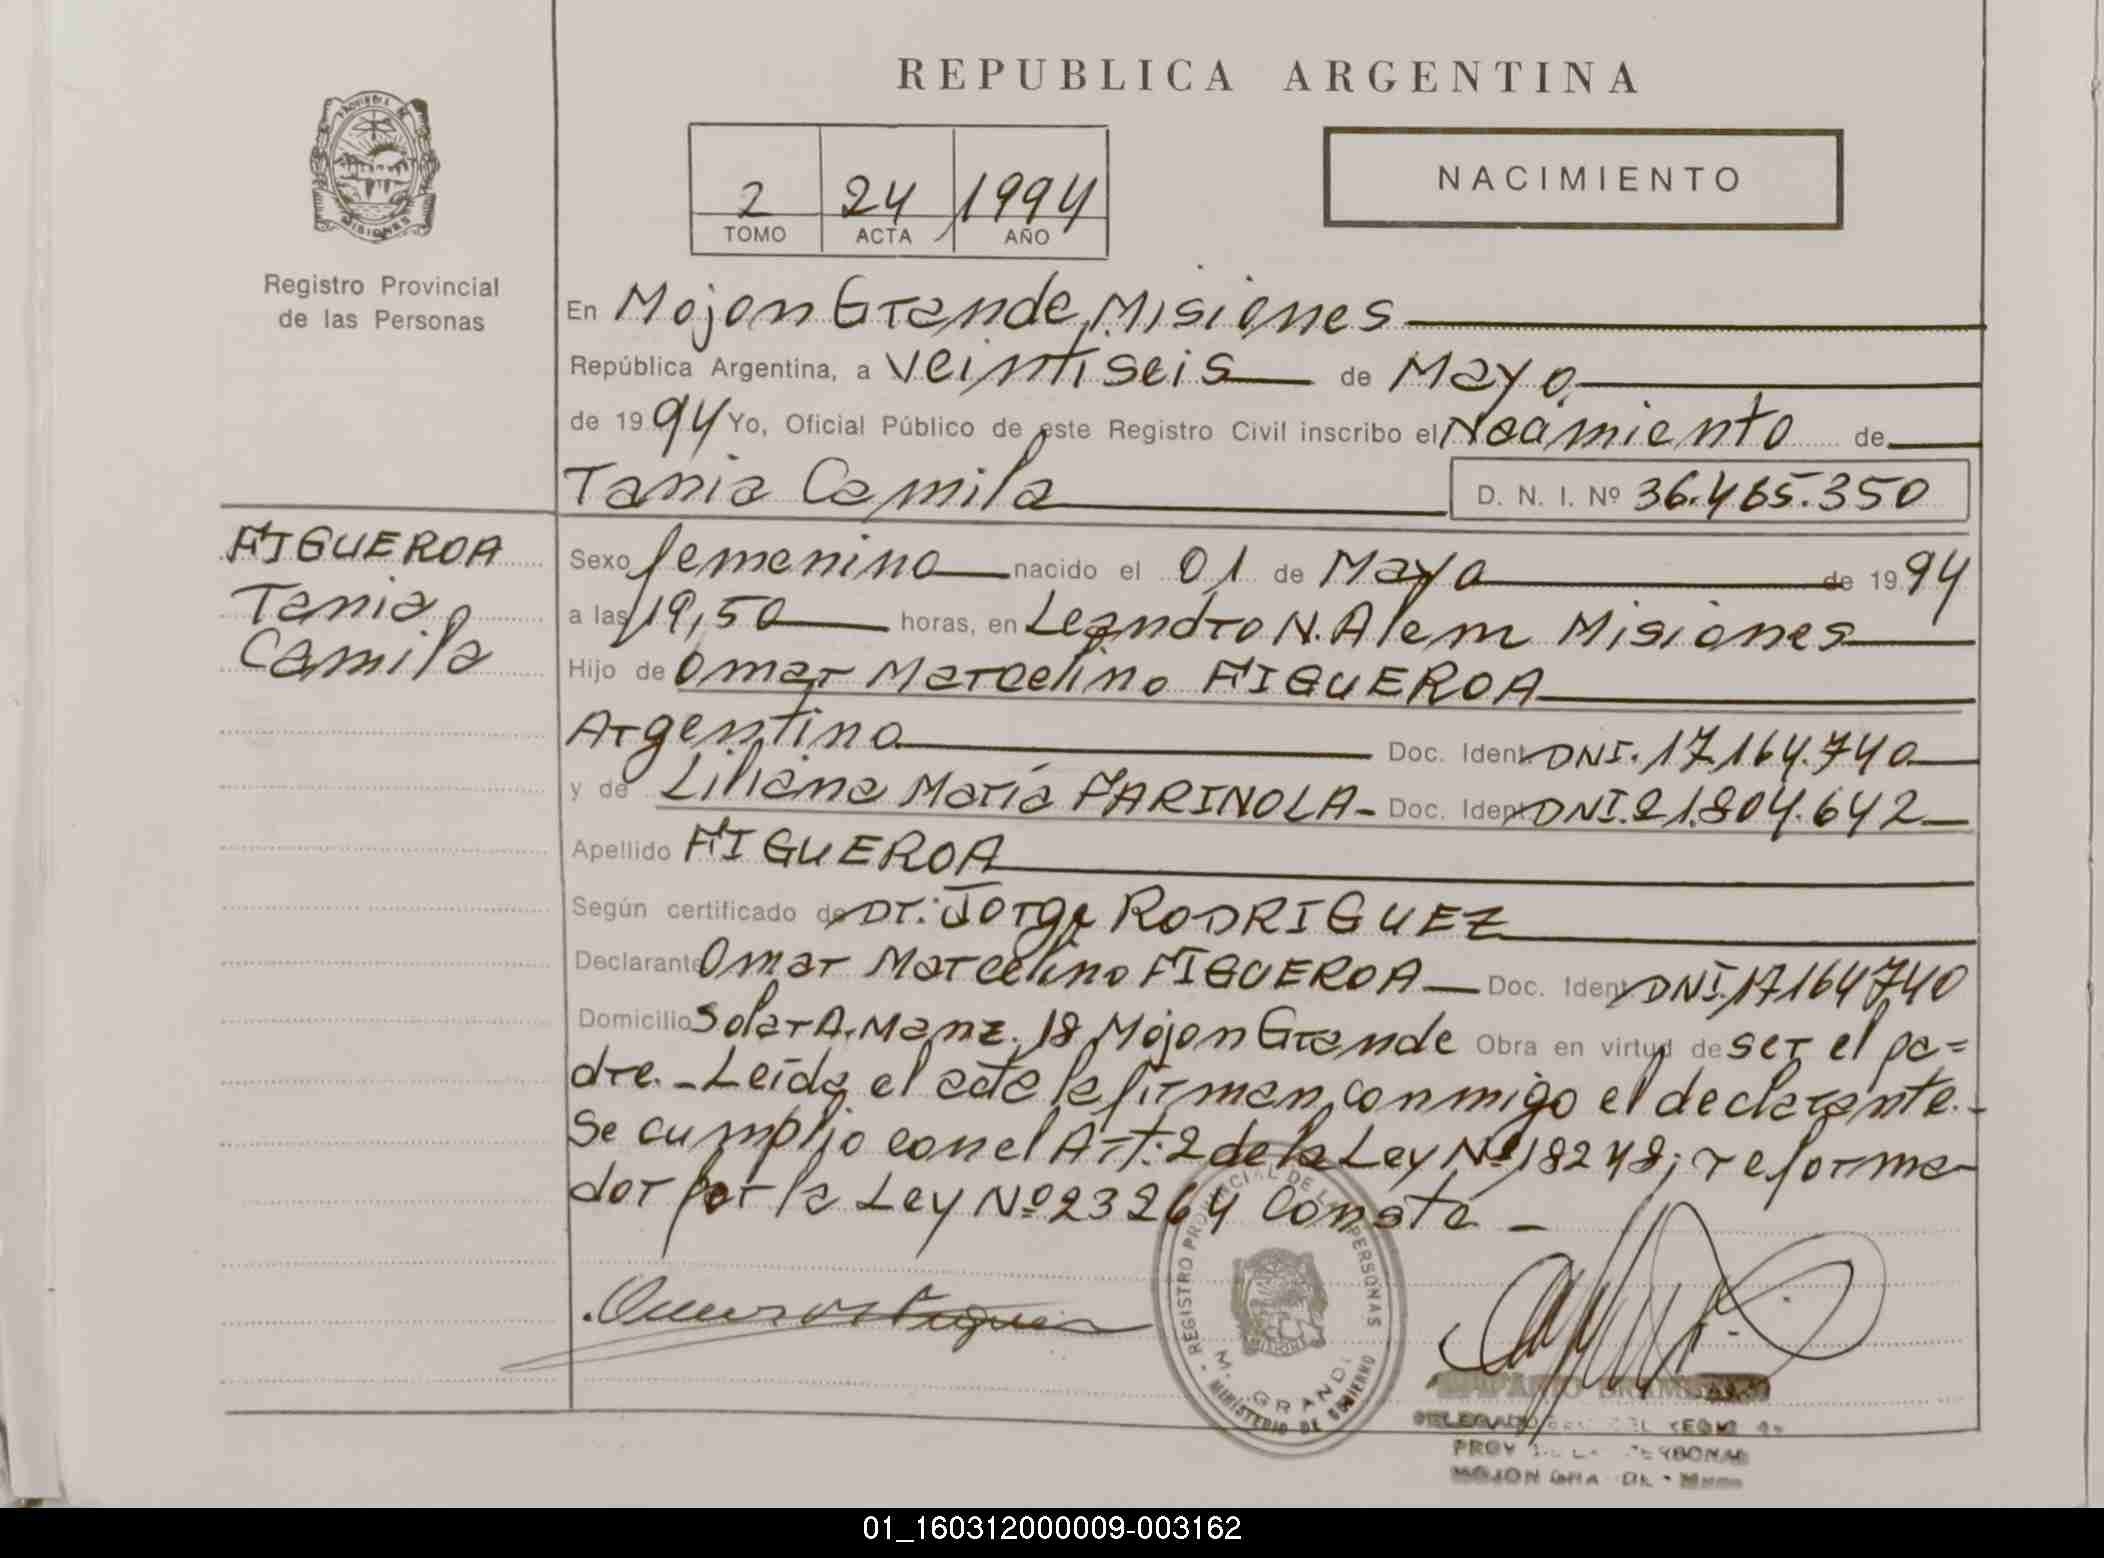 REPUBLICA ARGENTINA
2 24 1994
TOMO ACTA AÑO
NACIMIENTO
PROVINCIA DE MISIONES
Registro Provincial
de las Personas
En Mojon Grande, Misiones
República Argentina, a veintiseis de Mayo
de 1994 Yo, Oficial Público de este Registro Civil inscribo el Nacimiento de
Tania Camila D. N. I. Nº 36.465.350
FIGUEROA
Tania
Camila
Sexo femenino nacido el 01 de Mayo de 1994
a las 19,50 horas, en Leandro N. Alem Misiones
Hijo de Omar Marcelino FIGUEROA
Argentino Doc. Ident. DNI. 17.164.740
y de Liliana María FARINOLA - Doc. Ident. DNI. 21.804.642
Apellido FIGUEROA
Según certificado de Dr. Jorge RODRIGUEZ
Declarante Omar Marcelino FIGUEROA Doc. Ident. DNI. 17164740
Domicilio Solar A. Manz. 18 Mojon Grande Obra en virtud de ser el pa=
dre. - Leída el acta la firman conmigo el declarante. -
Se cumplio con el Art: 2 de la Ley Nº 18248; reforma-
dor por la Ley Nº 23264 Conste -
REGISTRO PROVINCIAL DE LAS PERSONAS
M. GRANDE
MINISTERIO DE GOBIERNO
DELEGADO
MOJON
01_160312000009-003162